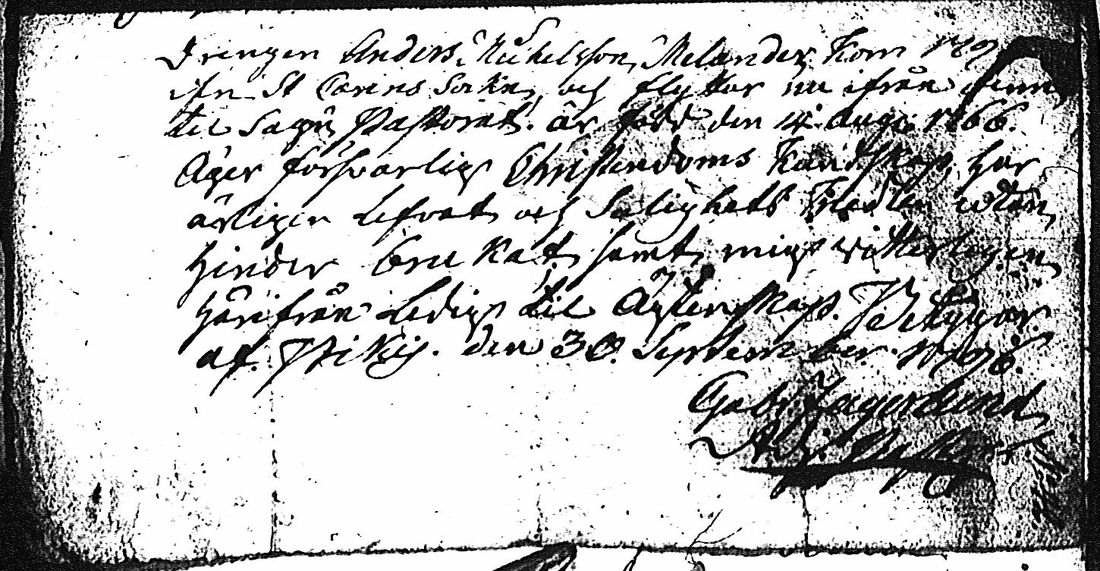 Drengen Anders Michelsson Melander, kom 1791
ifrån St Carins Sokn, och flyttar nu ifrån
til Sagu Pastorat. är född den 14 Aug: 1766.
Äger försvarlig Christendoms Kundskap, har
ärligen lefvat och Salighets Medlen utan
hinder brukat, samt mig vitterligen
härifrån Ledig til Ägtenskap. Betygar
af Pikis. den 30. September. 1796.
Gab: Fagerlund
Adj: